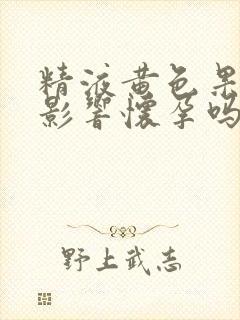 精液黄色果
影響懷孕嗎
野上武志